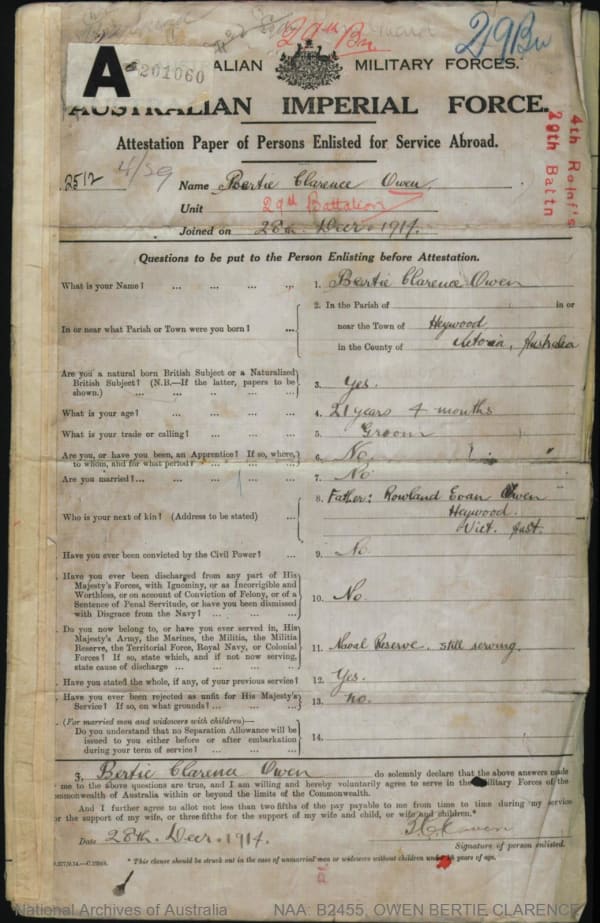 29th Bn
29 Bn
A
201060
ALIAN MILITARY FORCES.
AUSTRALIAN IMPERIAL FORCE.
Attestation Paper of Persons Enlisted for Service Abroad.
4th Reinf's
29th Battn
2512 4/29
Name Bertie Clarence Owen.
Unit 29th Battalion
Joined on 28th Decr. 1914.
Questions to be put to the Person Enlisting before Attestation.
What is your Name? ... ... ... ... 1. Bertie Clarence Owen
In or near what Parish or Town were you born? ...
2. In the Parish of in or
near the Town of Heywood
in the County of Victoria, Australia
Are you a natural born British Subject or a Naturalized
British Subject? (N.B.—If the latter, papers to be
shown.) ... ... ... ... 3. Yes.
What is your age? ... ... ... ... 4. 21 years 4 months
What is your trade or calling? ... ... ... 5. Groom
Are you, or have you been, an Apprentice? If so, where,
to whom, and for what period? ... ... ... 6. No
Are you married?... ... ... ... ... 7. No
Who is your next of kin? (Address to be stated) ...
8. Father: Rowland Evan Owen
Heywood.
Vict. Aust.
Have you ever been convicted by the Civil Power? ... 9. No
Have you ever been discharged from any part of His
Majesty's Forces, with Ignominy, or as Incorrigible and
Worthless, or on account of Conviction of Felony, or of a
Sentence of Penal Servitude, or have you been dismissed
with Disgrace from the Navy? ... ... ... 10. No.
Do you now belong to, or have you ever served in, His
Majesty's Army, the Marines, the Militia, the Militia
Reserve, the Territorial Force, Royal Navy, or Colonial
Forces? If so, state which, and if not now serving,
state cause of discharge ... ... ... 11. Naval Reserve. still serving.
Have you stated the whole, if any, of your previous service? 12. Yes.
Have you ever been rejected as unfit for His Majesty's
Service? If so, on what grounds? ... ... ... 13. no.
(For married men and widowers with children)—
Do you understand that no Separation Allowance will be
issued to you either before or after embarkation
during your term of service? ... ... ... 14.
3, Bertie Clarence Owen do solemnly declare that the above answers made
me to the above questions are true, and I am willing and hereby voluntarily agree to serve in the Military Forces of the
mmonwealth of Australia within or beyond the limits of the Commonwealth.
And I further agree to allot not less than two fifths of the pay payable to me from time to time during my service
or the support of my wife, or three fifths for the support of my wife and child, or wife and children.*
Date 28th. Decr. 1914.
Signature of person enlisted.
* This clause should be struck out in the case of unmarried men or widowers without children under 18 years of age.
National Archives of Australia NAA: B2455, OWEN BERTIE CLARENCE